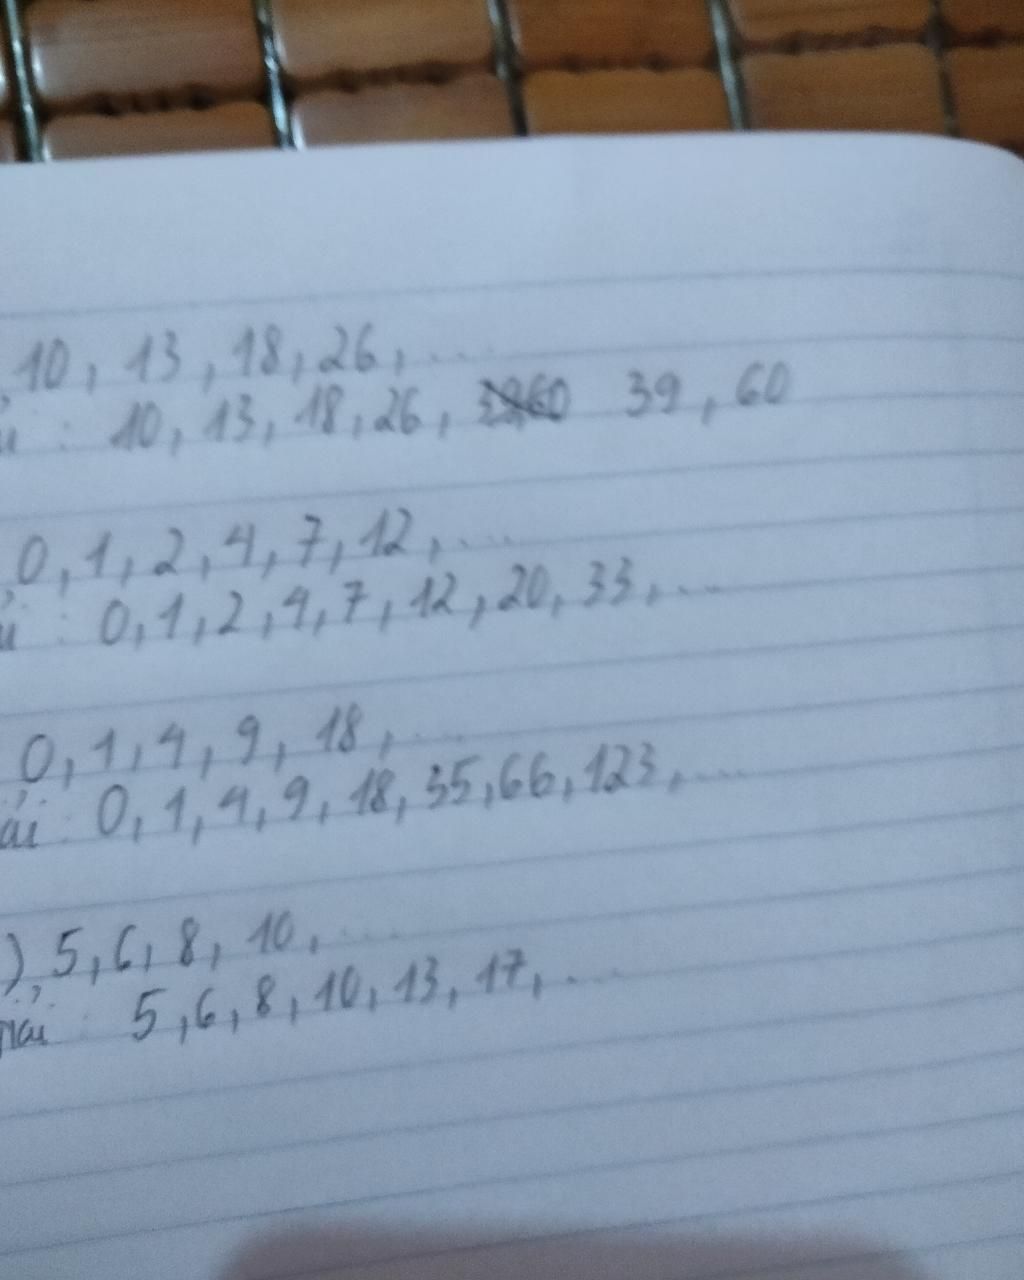 10, 13, 18, 26, ...
: 10, 13, 18, 26, 39, 60
0, 1, 2, 4, 7, 12, ...
: 0, 1, 2, 4, 7, 12, 20, 33, ...
0, 1, 4, 9, 18, ...
ải : 0, 1, 4, 9, 18, 35, 66, 123, ...
) 5, 6, 8, 10, ...
iải : 5, 6, 8, 10, 13, 17, ...